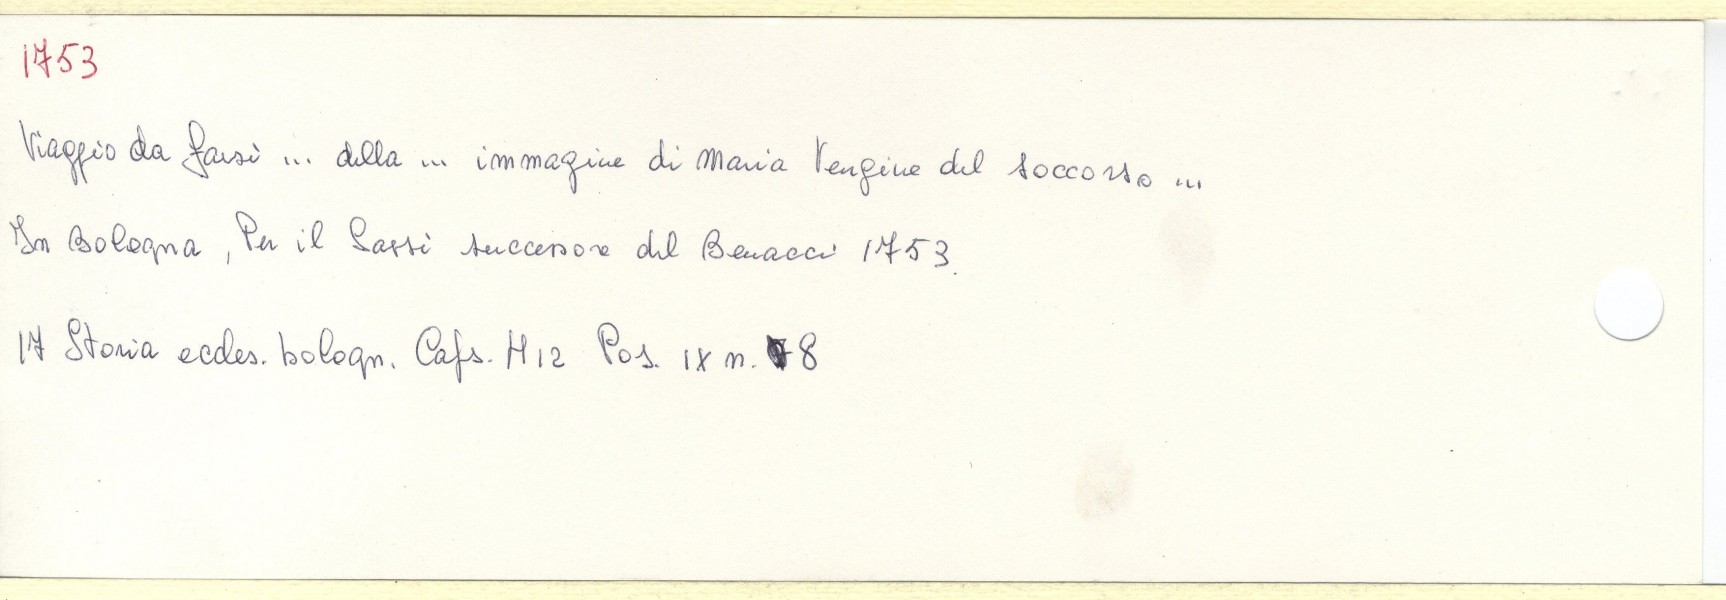 1753
Viaggio da farsi ... della ... immagine di Maria Vergine del soccorso ...
In Bologna, Per il Sassi successore del Benacci 1753.
17 Storia eccles. bologn. Caps. H12 Pos. IX n. 8